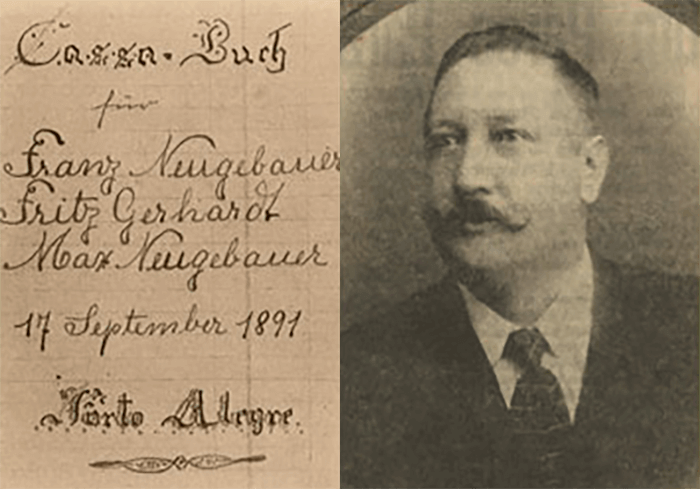 Cassa-Buch
für
Franz Neugebauer
Fritz Gerhardt
Max Neugebauer
17 September 1891
Pôrto Alegre.